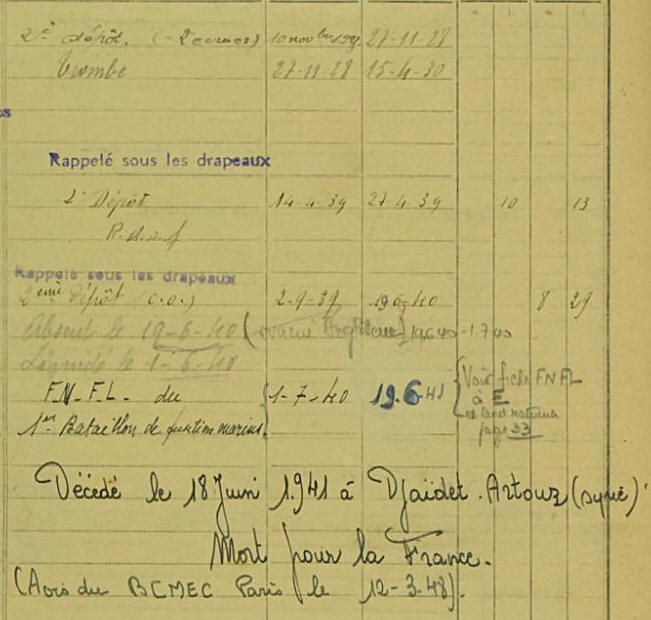 2e dépôt. 10 novbre 27-11-28
Trombe 27-11-28 15-4-30
Rappelé sous les drapeaux
2e Dépôt 14-4-39 27-4-39 10 13
Rappelé sous les drapeaux
2eme Dépôt (C.O.) 2-9-39 19-6-40 8 29
Absent le 19-6-40 (évacué Angleterre) 19.6.40 - 1.7.40
Liquidé le 1-6-40
F.N.F.L. du 1-7-40 19.6.41 Voir fiche FNFL
à E
1er Bataillon de fusiliers marins. page 33
Décédé le 18 Juin 1941 à Djaïdet.Artouz (syrie)
Mort pour la France.
(Avis du BCMEC Paris le 12-3-48).